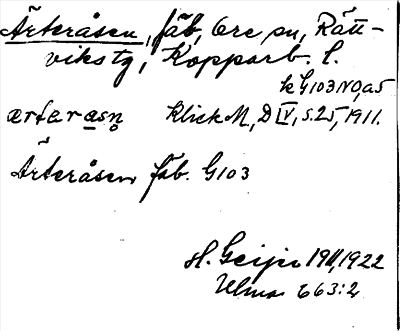 Ärteråsen, fäb, Ore sn, Rätt-
viks tg, Kopparb. l.
k G103NO, a5
ærteråsn̥ Klick M, D IV, s. 25, 1911.
Ärteråsen fäb. G103
H. Geijer 19 1922
Ulma 663:2